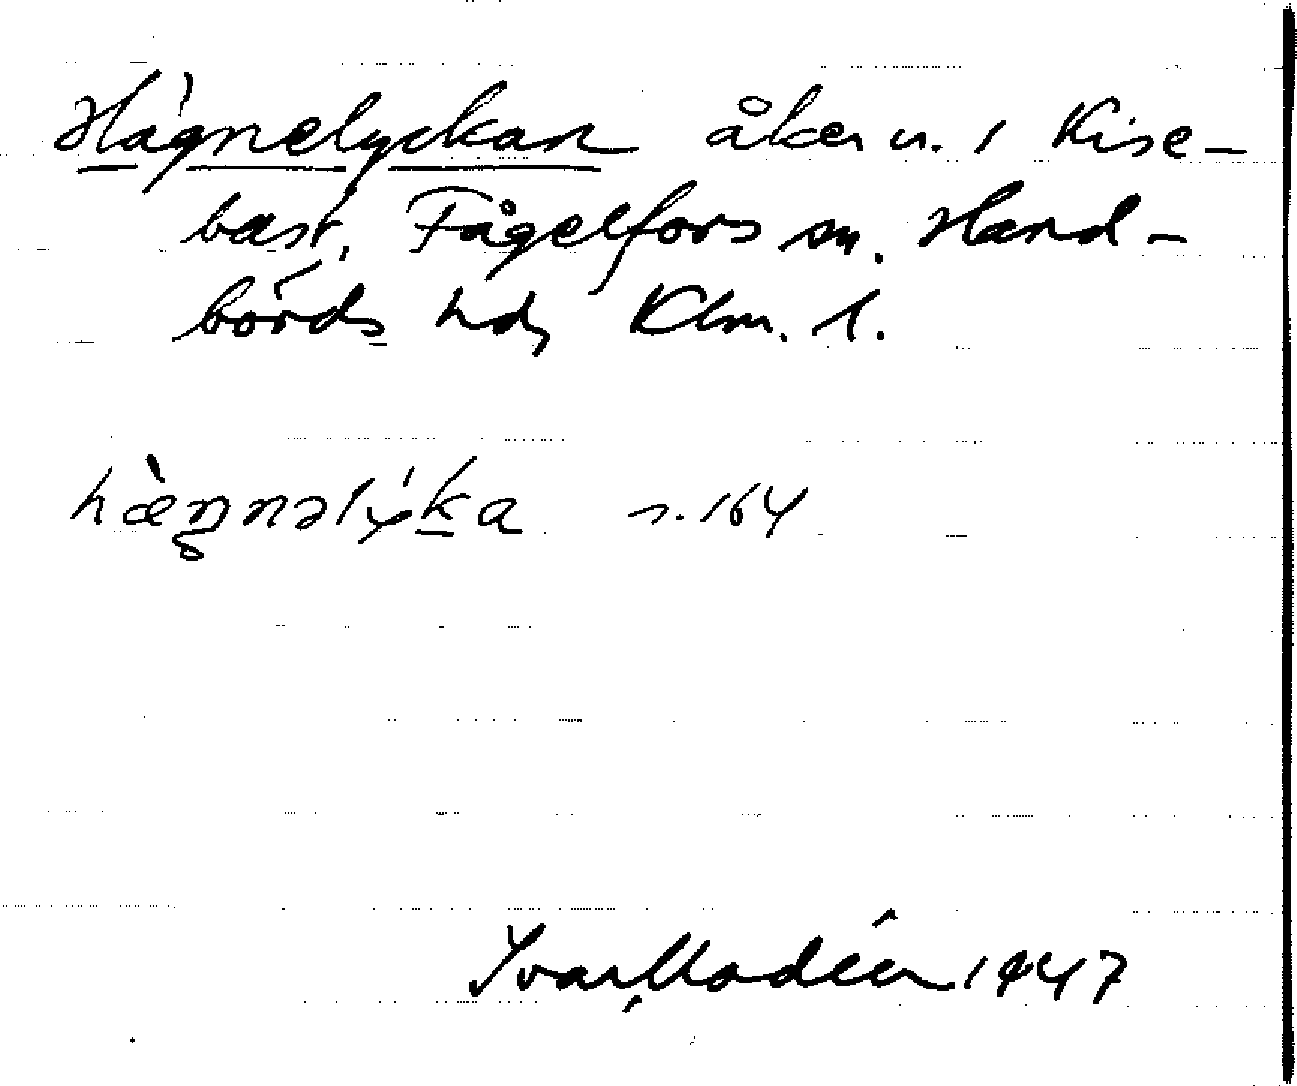 Hägnelyckan åker u. 1 Kise-
bast, Fågelfors sn. Hand-
börds hd, Klm. l.
hæŋnəlyka s. 164
Ivar Modéer 1947